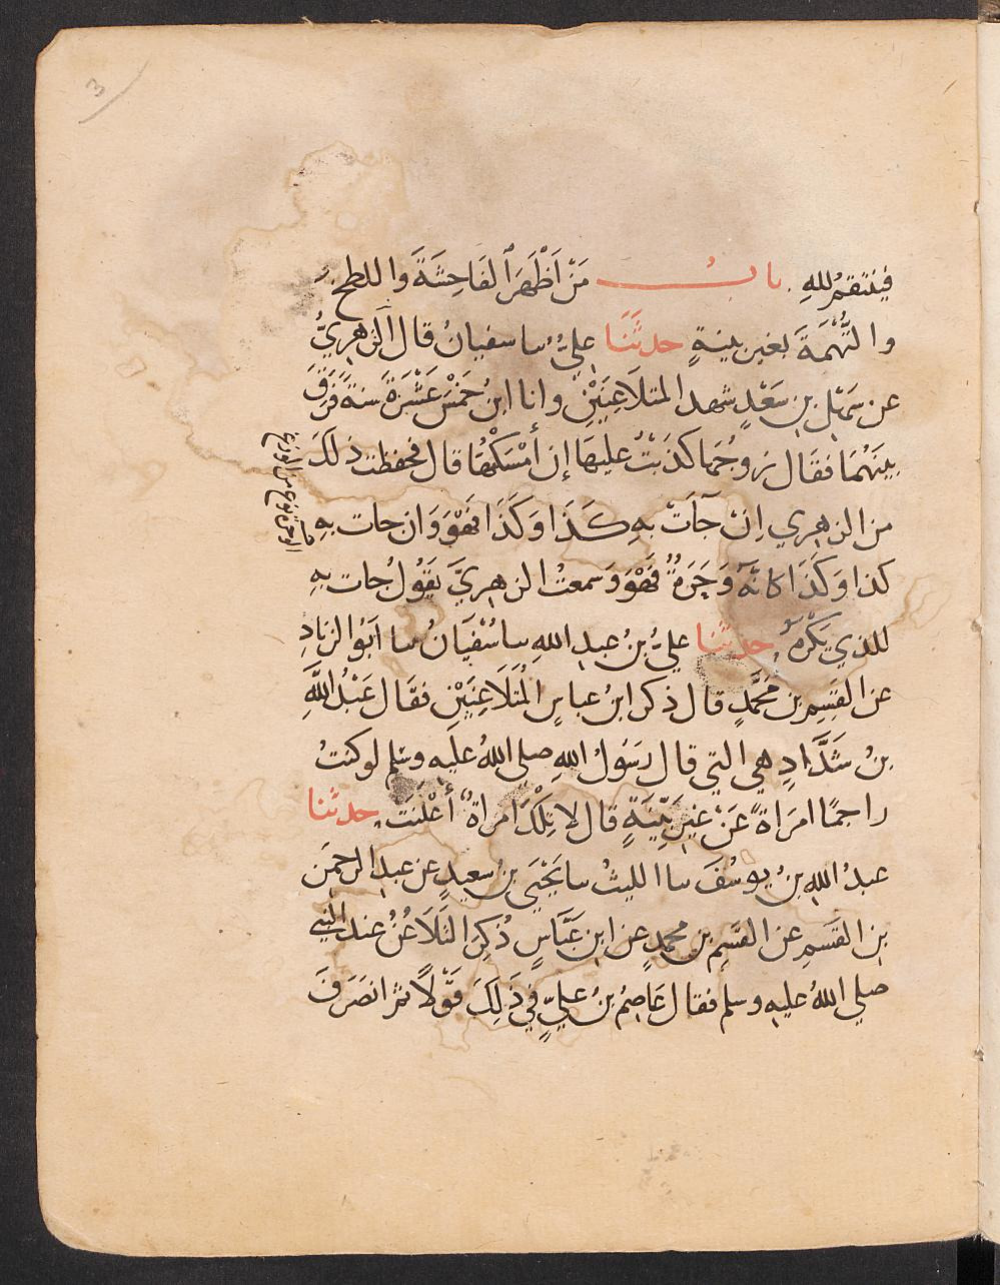 3
فينتقمُ لِلهِ . بابُ مَنْ اَظْهَرَ الفَاحِشَةَ واللطخ
والتُّهْمَةَ بغير بينةٍ حدثَنَا عليٌّ سا سفيانُ قال الزهرِيُّ
عن سَهْلِ بنِ سَعْدٍ شهد المتلَاعِنَيْنِ وانا ابنُ خَمْسَ عَشْرَةَ سنةً فَرَّقَ
بينَهُمَا فقال زوجُهَا كذَبتُ عليهَا إن أمْسَكْتُهَا قال فحفظت ذلكَ
من الزهري اِنْ جَآَتْ بِهِ كَذَا وَكَذَا فَهْوَ وَان جات بِهِ
كذا وَكَذَا كانَّهُ وَحَرَةٌ فَهْوَ وَسمعتُ الزهريَّ يَقُولُ جات بِهِ
للذي يُكْرَهُ حدثنا عليُّ بنُ عبدِ اللهِ سا سُفْيَانُ سا اَبُو الزنادِ
عن القسِمِ بن مُحَمَّدٍ قال ذكر ابنُ عباسٍ المُتَلَاعِنَيْنِ فقال عَبْدُ اللَّهِ
بنُ شَدَّادٍ هي التي قال رسُولُ اللهِ صلى اللهُ عليه وسلم لو كنتُ
راجمًا امرَاةً عَنْ غيرِ بَيِّنَةٍ قال لا تِلْكَ امراةٌ أعْلَنَتْ حدثنا
عبدُ اللهِ بنُ يوسُفَ سا الليثُ سا يَحْيَى بنُ سعيدٍ عن عبدِ الرحمَن
بنِ القسَمِ عن القسِمِ بنِ محمدٍ عن ابنِ عَبَّاسٍ ذُكِرَ التَلَاعُنُ عند النبي
صلى اللهُ عليهِ وسلم فقال عَاصِمُ بنُ عليٍّ في ذَلِكَ قَوْلًا ثم انصَرَفَ
الوحرة نوع من الوزغ